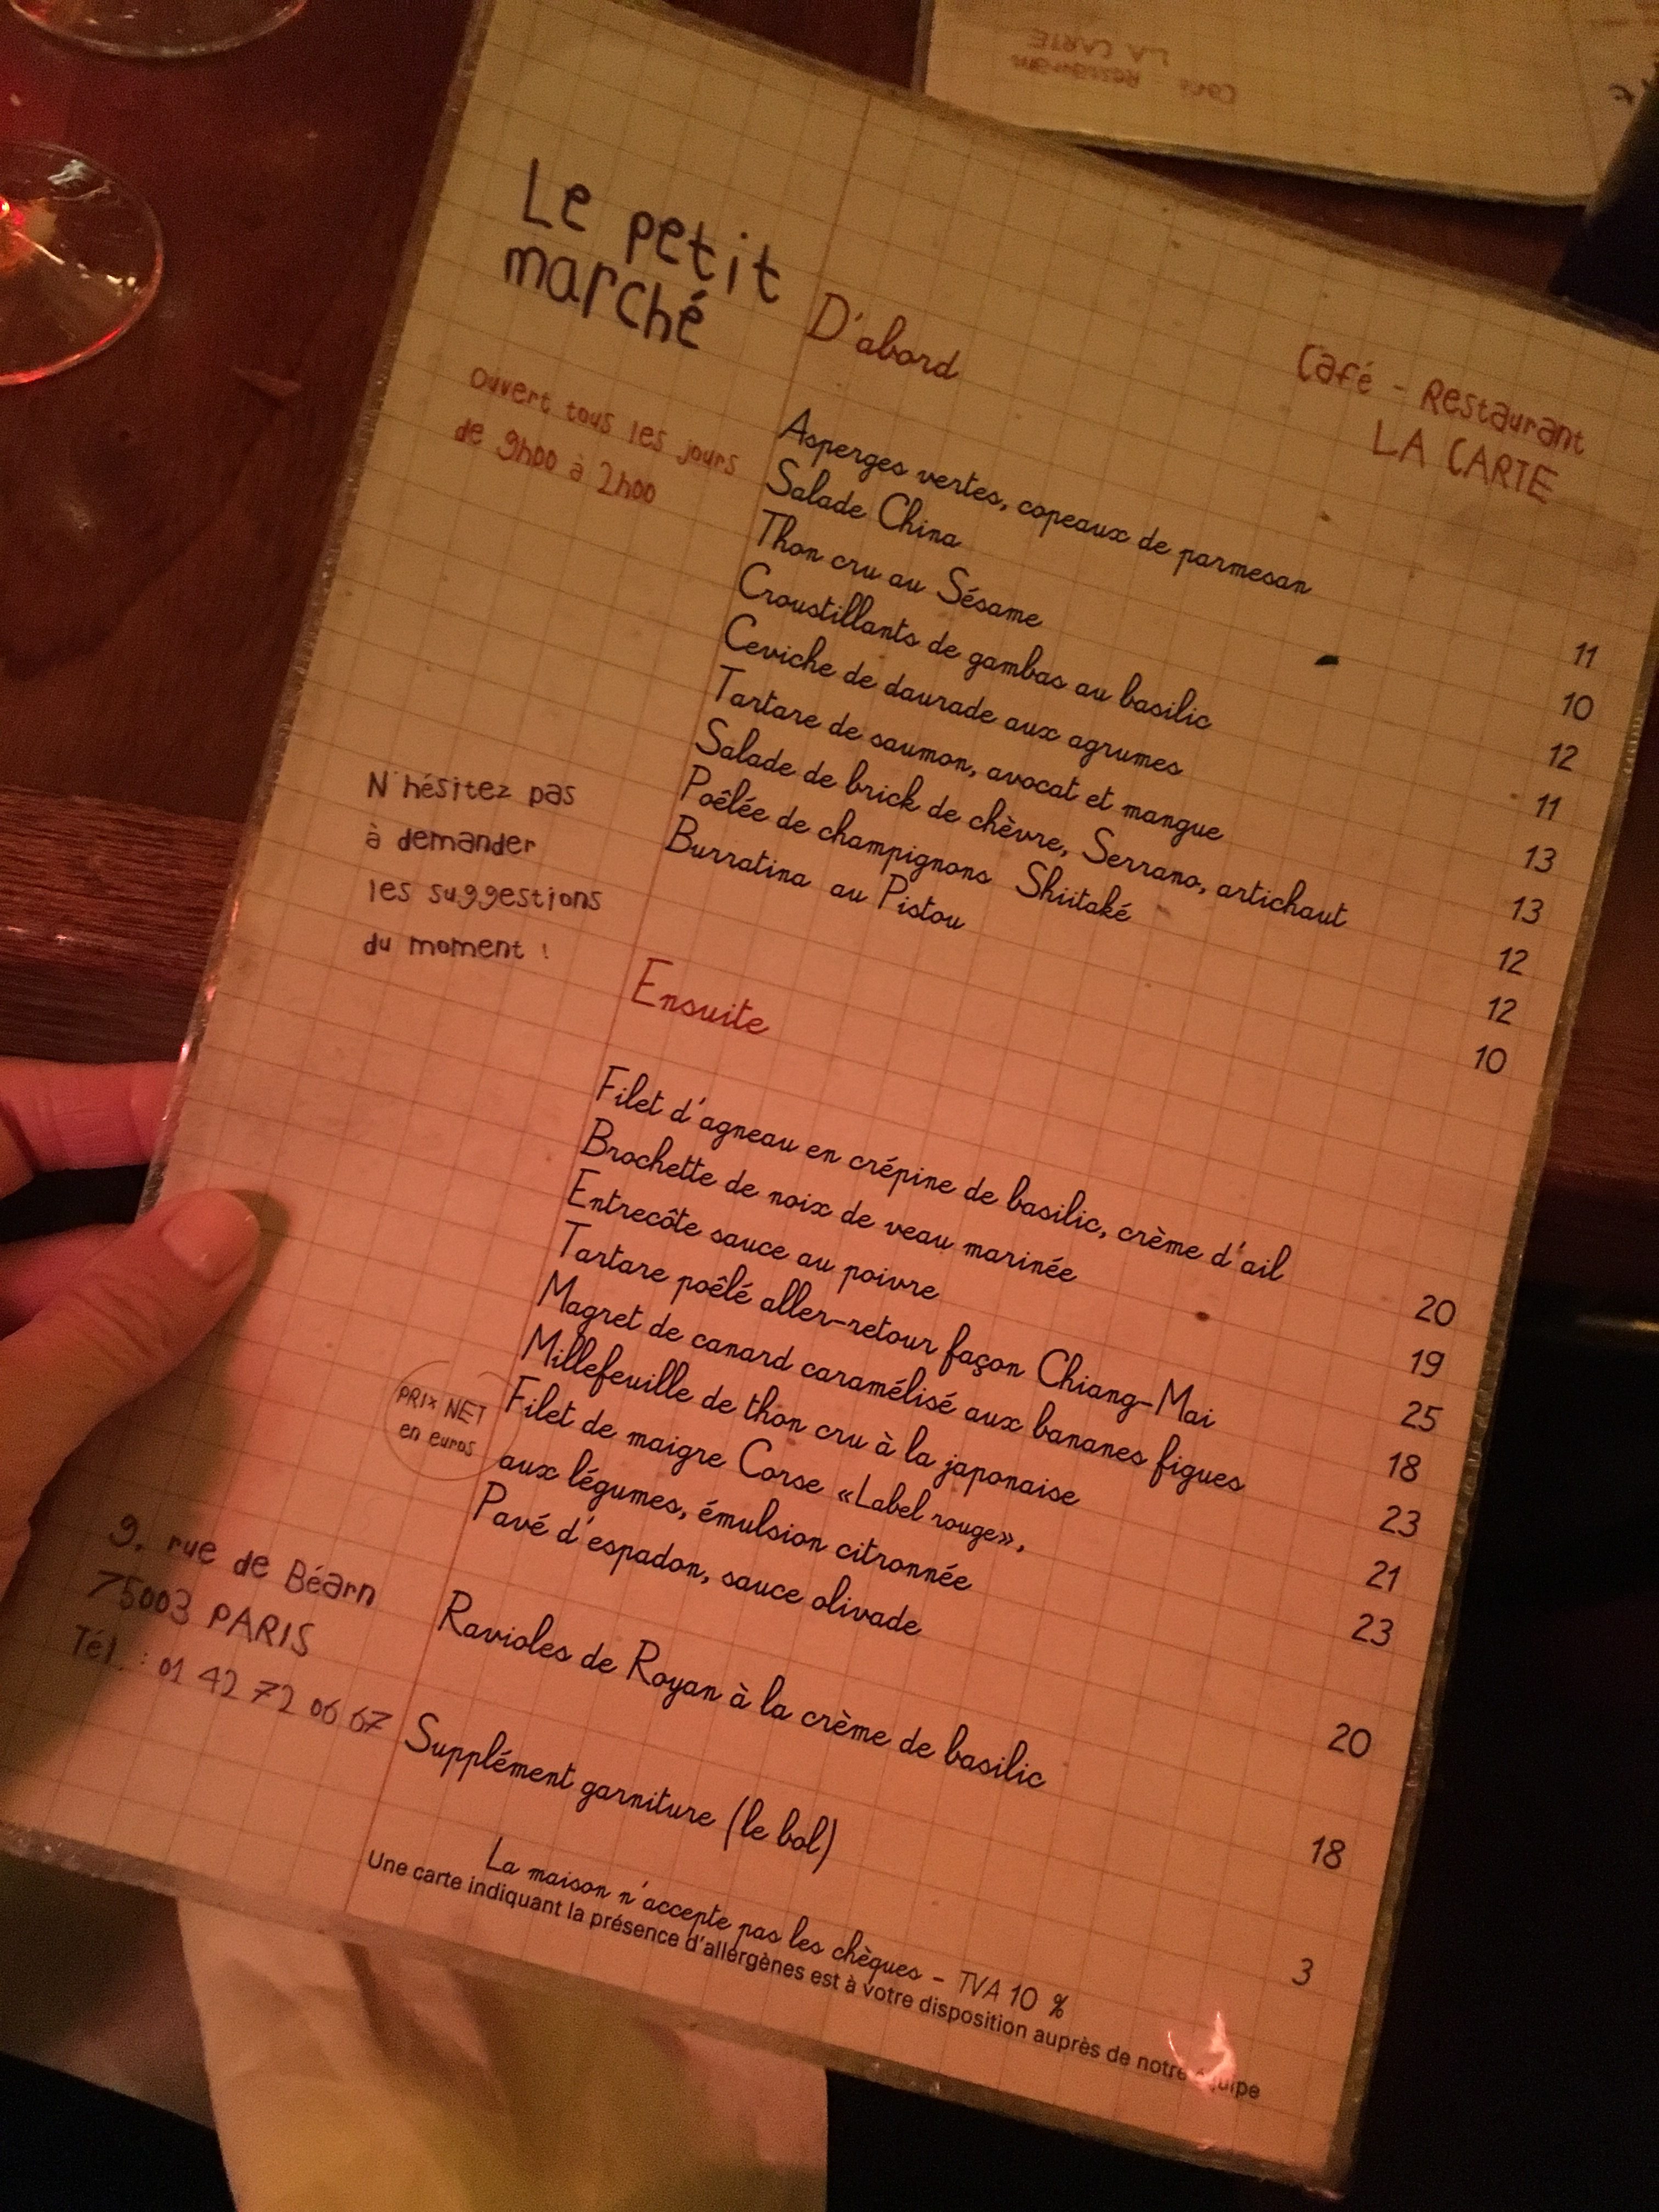 Le petit
marché
Ouvert tous les jours
de 9h00 à 2h00
Café - Restaurant
LA CARTE
D'abord
Asperges vertes, copeaux de parmesan 11
Salade China 10
Thon cru au Sésame 12
Croustillants de gambas au basilic 11
Ceviche de daurade aux agrumes 13
Tartare de saumon, avocat et mangue 13
Salade de brick de chèvre, Serrano, artichaut 12
Poêlée de champignons Shiitaké 12
Burratina au Pistou 10
N'hésitez pas
à demander
les suggestions
du moment !
Ensuite
Filet d'agneau en crépine de basilic, crème d'ail 20
Brochette de noix de veau marinée 19
Entrecôte sauce au poivre 25
Tartare poêlé aller-retour façon Chiang-Mai 18
Magret de canard caramélisé aux bananes figues 23
Millefeuille de thon cru à la japonaise 21
Filet de maigre Corse «Label rouge»,
aux légumes, émulsion citronnée 23
Pavé d'espadon, sauce olivade 20
Ravioles de Royan à la crème de basilic 18
Supplément garniture (le bol) 3
PRIX NET
en euros
9, rue de Béarn
75003 PARIS
Tél. : 01 42 72 06 67
La maison n'accepte pas les chèques - TVA 10 %
Une carte indiquant la présence d'allergènes est à votre disposition auprès de notre équipe
Café - Restaurant
LA CARTE